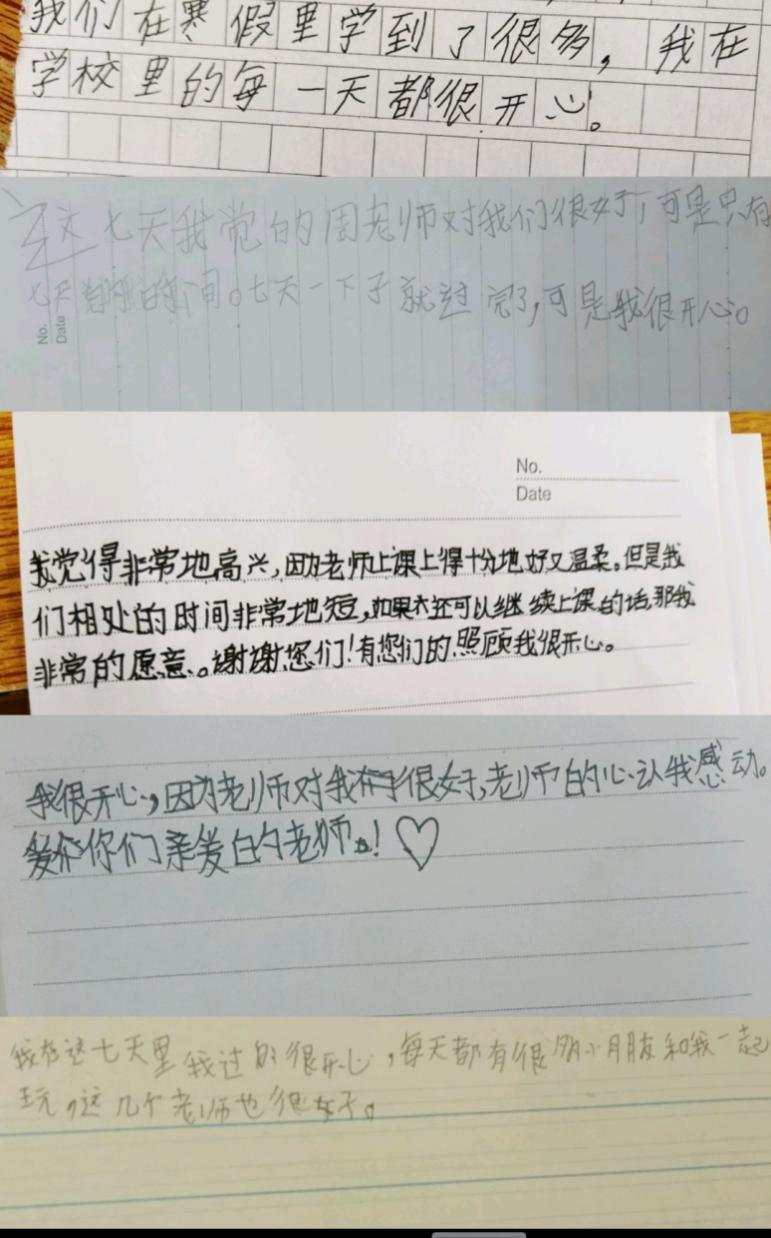 我们在寒假里学到了很多，我在
学校里的每一天都很开心。
这七天我觉的周老师对我们很好，可是只有
七天的时间。七天一下子就过完了，可是我很开心。
No.
Date
No.
Date
我觉得非常地高兴，因为老师上课上得十分地好又温柔。但是我
们相处的时间非常地短，如果还可以继续上课的话，那我
非常的愿意。谢谢您们！有您们的照顾我很开心。
我很开心，因为老师对我很好，老师的心认我感动。
爱你们亲爱的老师！♡
我在这七天里我过的很开心，每天都有很多小朋友和我一起
玩，这几个老师也很好。